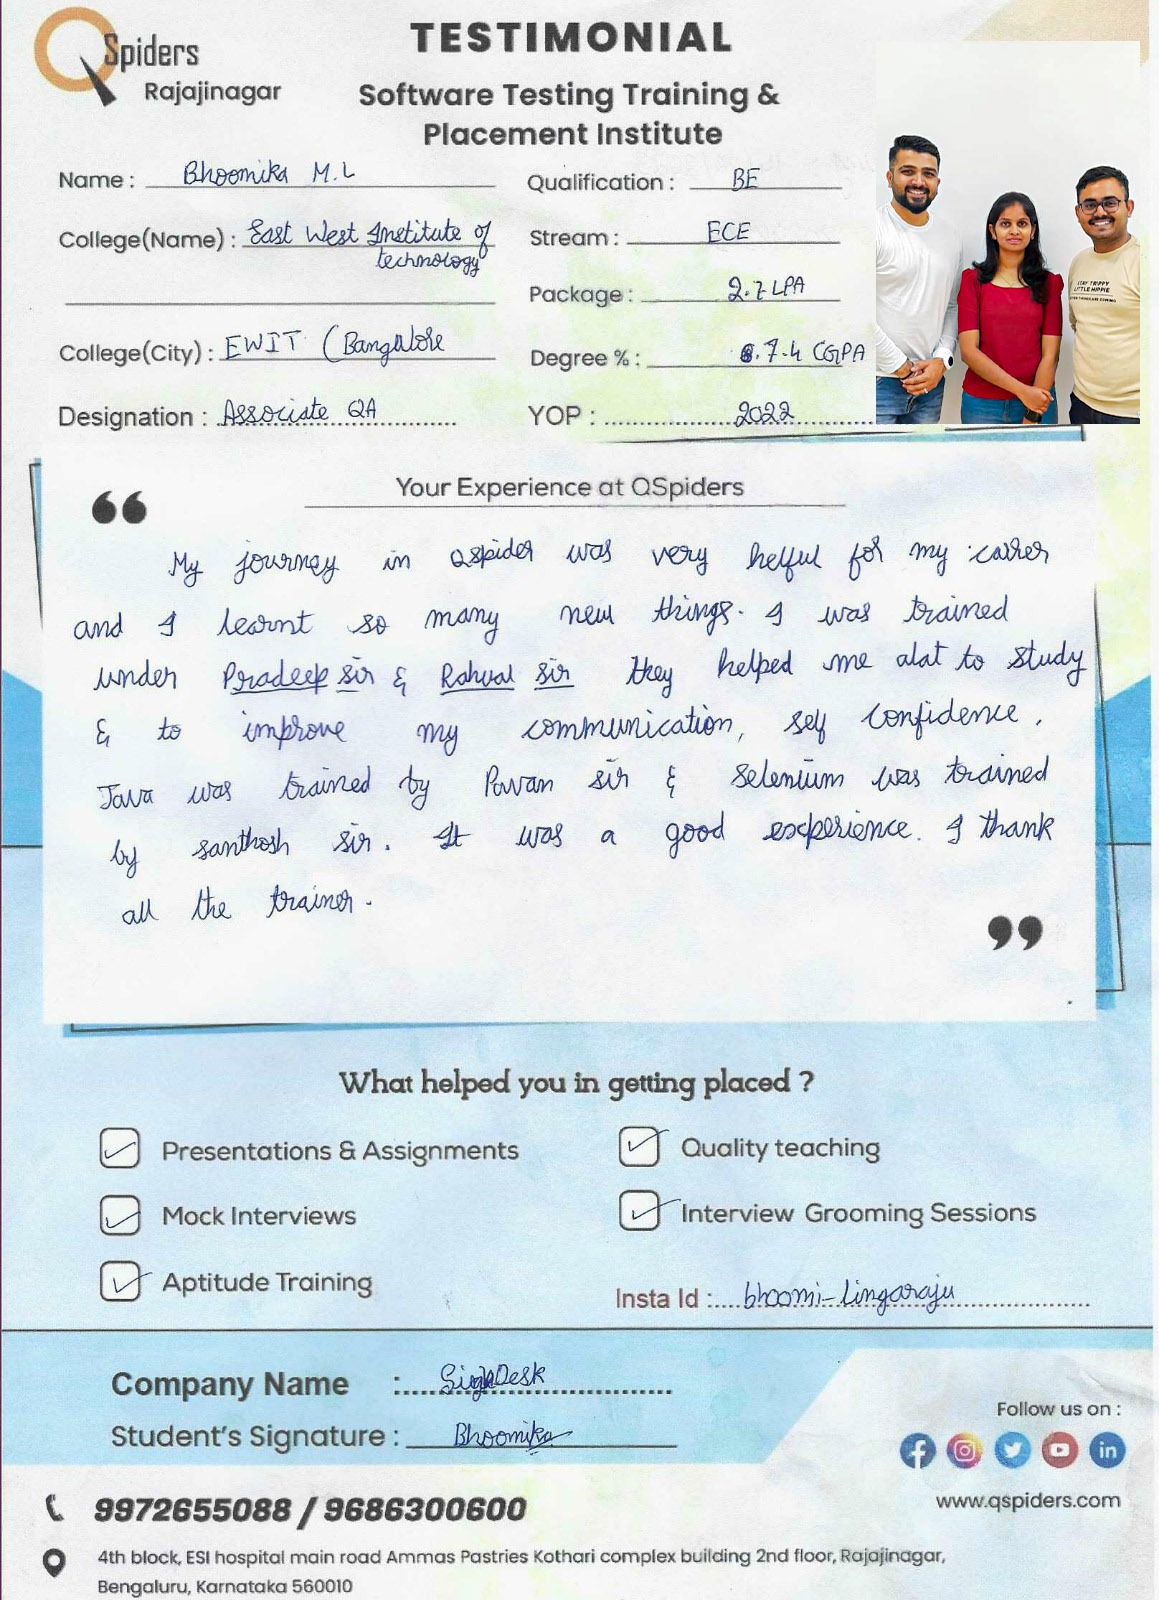 QSpiders
Rajajinagar
TESTIMONIAL
Software Testing Training &
Placement Institute
Name : Bhoomika M.L
College(Name) : East West Institute of
technology
College(City) : EWIT (Bangalore
Designation : Associate QA
Qualification : BE
Stream : ECE
Package : 2.7 LPA
Degree % : 7.4 CGPA
YOP : 2022
STAY TRIPPY
LITTLE HIPPIE
Your Experience at QSpiders
“
My journey in Qspider was very helful for my carrer
and I learnt so many new things. I was trained
under Pradeep sir & Rahual sir they helped me alat to study
& to improve my communication, self confidence.
Java was trained by Pavan sir & Selenium was trained
by santhosh sir. It was a good experience. I thank
all the trainer.
”
What helped you in getting placed ?
Presentations & Assignments
Mock Interviews
Aptitude Training
Quality teaching
Interview Grooming Sessions
Insta Id : bhoomi-lingaraju
Company Name :
Student's Signature : Bhoomika
Follow us on :
www.qspiders.com
9972655088 / 9686300600
4th block, ESI hospital main road Ammas Pastries Kothari complex building 2nd floor, Rajajinagar,
Bengaluru, Karnataka 560010